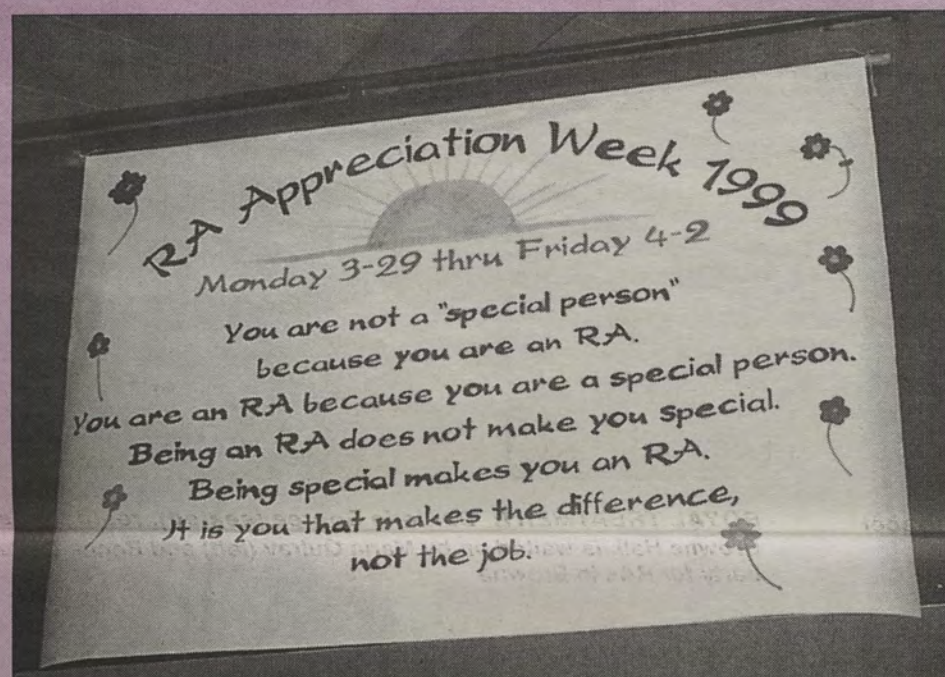 RA Appreciation Week 1999
Monday 3-29 thru Friday 4-2
You are not a "special person"
because you are an RA.
You are an RA because you are a special person.
Being an RA does not make you special.
Being special makes you an RA.
It is you that makes the difference,
not the job.